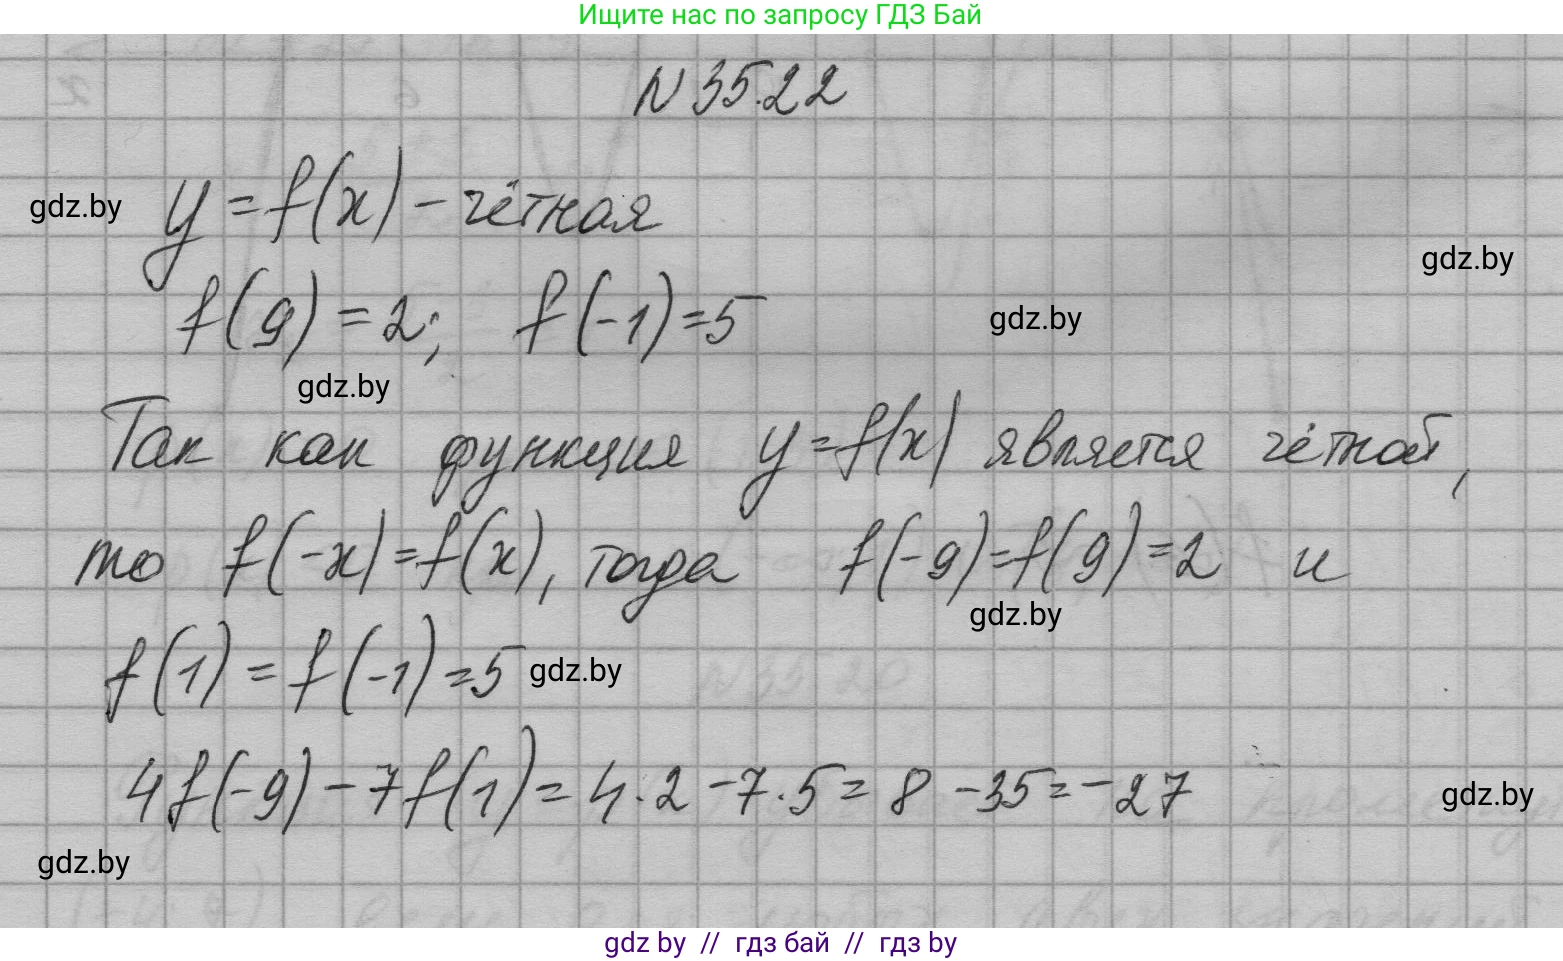 Ищите нас по запросу ГДЗ Бай
N 35.22
gdz.by
y = f(x) - чётная
gdz.by
f(9) = 2; f(-1) = 5
gdz.by
gdz.by
Так как функция y = f(x) является чётной,
то f(-x) = f(x), тогда f(-9) = f(9) = 2 и
gdz.by
f(1) = f(-1) = 5
gdz.by
4f(-9) - 7f(1) = 4·2 - 7·5 = 8 - 35 = -27
gdz.by
gdz.by
gdz by // гдз бай // гдз by